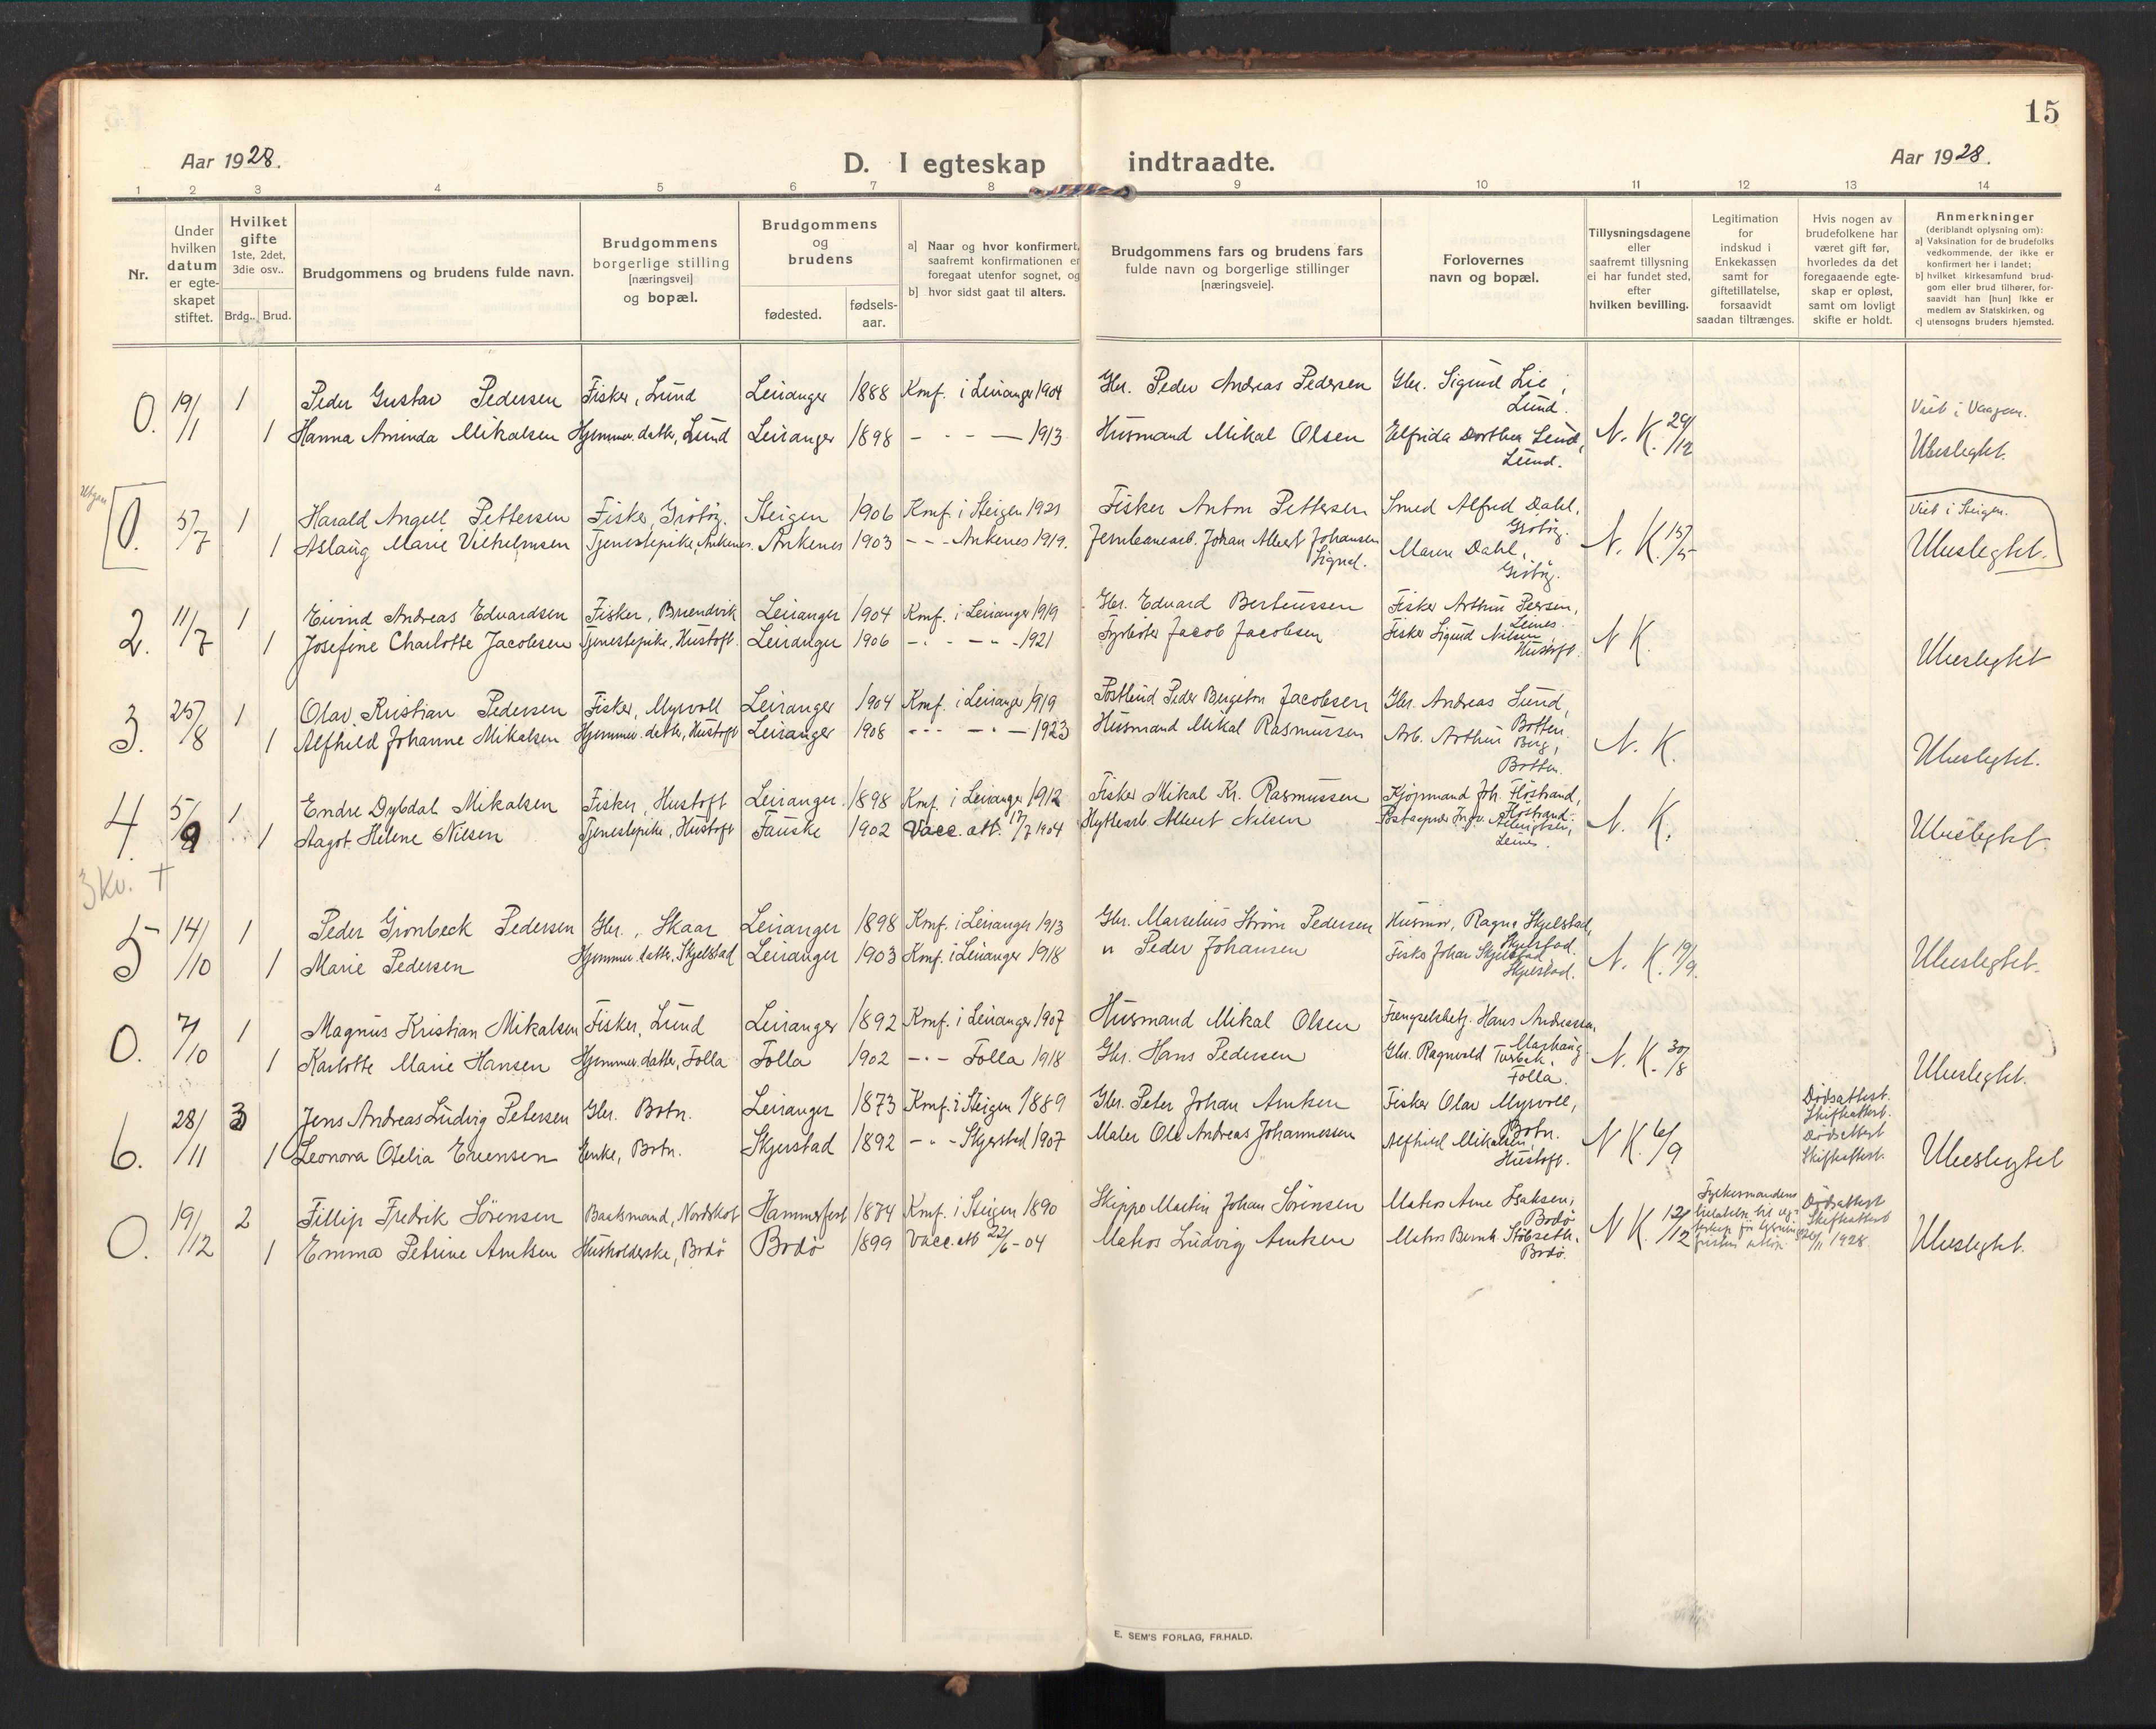 15
Aar 1928.
D. I egteskap indtraadte.
Aar 1928.
1 2 3 4 5 6 7 8 9 10 11 12 13 14
Nr.
Under
hvilken
datum
er egte-
skapet
stiftet.
Hvilket
gifte
1ste, 2det,
3die osv..
Brdg.. Brud.
Brudgommens og brudens fulde navn.
Brudgommens
borgerlige stilling
[næringsvei]
og bopæl.
Brudgommens
og
brudens
fødested.
fødsels-
aar.
a] Naar og hvor konfirmert,
saafremt konfirmationen er
foregaat utenfor sognet, og
b] hvor sidst gaat til alters.
Brudgommens fars og brudens fars
fulde navn og borgerlige stillinger
[næringsveie].
Forlovernes
navn og bopæl.
Tillysningsdagene
eller
saafremt tillysning
ei har fundet sted,
efter
hvilken bevilling.
Legitimation
for
indskud i
Enkekassen
samt for
giftetillatelse,
forsaavidt
saadan tiltrænges.
Hvis nogen av
brudefolkene har
været gift før,
hvorledes da det
foregaaende egte-
skap er opløst,
samt om lovligt
skifte er holdt.
Anmerkninger
(deriblandt oplysning om):
a] Vaksination for de brudefolks
vedkommende, der ikke er
konfirmert her i landet;
b] hvilket kirkesamfund brud-
gom eller brud tilhører, for-
saavidt han [hun] ikke er
medlem av Statskirken, og
c] utensogns bruders hjemsted.
0. 19/1 1 Peder Gustav Pedersen Fisker, Lund Leiranger 1888 Konf. i Leiranger 1904 Gbr. Peder Andreas Pedersen Gbr. Sigurd Lie, Lund. N. K. 29/12 Viet i Vaagan.
1 Hanna Aminda Mikalsen Hjemmev. datter, Lund Leiranger 1898 - - - — 1913 Husmand Mikal Olsen Elfrida Dorthea Lund, Lund. Ubeslegtet.
0. 5/7 1 Harald Angell Pettersen Fisker, Grötöy. Steigen 1906 Konf. i Steigen 1921 Fisker Anton Pettersen Smed Alfred Dahl, Grötöy. N. K. 15/5 Viet i Steigen.
1 Aslaug Marie Vilhelmsen Tjenestepike, Ankenes. Ankenes 1903 - - - Ankenes 1919. Jernbanearb. Johan Albert Johansen Signal. Maren Dahl, Grötöy. Ubeslegtet.
2. 11/7 1 Eivind Andreas Edvardsen Fisker, Brendvik Leiranger 1904 Konf. i Leiranger 1919 Gbr. Edvard Berteussen Fisker Arthur Peersen, Leines. N K.
1 Josefine Charlotte Jacobsen Tjenestepike, Hustoft. Leiranger 1906 - - - - - 1921 Fyrböter Jacob Jacobsen Fisker Sigurd Nilsen, Hustoft. Ubeslegtet
3. 25/8 1 Olav Kristian Pedersen Fisker, Myrvoll Leiranger 1904 Konf. i Leiranger 1919 Postbud Peder Bergeton Jacobsen Gbr. Andreas Lund, Botten. N. K.
1 Alfhild Johanne Mikalsen Hjemmev. datter, Hustoft Leiranger 1908 - - - - - — 1923 Husmand Mikal Rasmussen Arb. Arthur Berg, Botten. Ubeslegtet.
4. 5/9 1 Endre Dybdal Mikalsen Fisker, Hustoft Leiranger. 1898 Konf. i Leiranger 1912 Fisker Mikal Kr. Rasmussen Kjöpmand Joh. Flöstrand, Flöstrand. N. K.
1 Aagot Helene Nilsen Tjenestepike, Hustoft Fauske 1902 Vacc. att. 17/7 1904 Hyttearb. Albert Nilsen Ingv. Albrigtsen, Leines. Ubeslegtet.
3 Kv. +
5 14/10 1 Peder Grönbeck Pedersen Gbr., Skaar Leiranger 1898 Konf. i Leiranger 1913 Gbr. Marselius Ström Pedersen Husmor, Ragna Skjelstad, Skjelstad. N. K. 19/9.
1 Marie Pedersen Hjemmev. datter, Skjelstad Leiranger 1903 Konf. i Leiranger 1918 " Peder Johansen Fisker Johan Skjelstad Skjelstad. Ubeslegtet.
0. 7/10 1 Magnus Kristian Mikalsen Fisker, Lund Leiranger 1892 Konf. i Leiranger 1907 Husmand Mikal Olsen Fængselsbetj. Hans Andreassen, Marhaug N. K. 30/8
1 Karlotte Marie Hansen Hjemmev. datter, Folla Folla 1902 - - - Folla 1918 Gbr. Hans Pedersen Gbr. Ragnvald Folla. Ubeslegtet.
6. 28/11 3 Jens Andreas Ludvig Petersen Gbr. Botn. Leiranger 1873 Konf. i Steigen 1889 Gbr. Peter Johan Arntsen Fisker Olav Myrvoll, Botn. N K. 6/9 Dödsattest. Skifteattest.
1 Leonora Ofelia Evensen Enke, Botn. Skjerstad 1892 - - - Skjerstad 1907 Maler Ole Andreas Johannessen Alfhild Mikalsen, Hustoft. Dödsattest Skifteattest. Ubeslegtet
0. 19/12 2 Fillip Fredrik Sörensen Baatsmand, Nordskot Hammerfest 1874 Konf. i Steigen 1890 Skipper Martin Johan Sörensen Matros Arne Isaksen, Bodö N K. 12/12 Fylkesmandens tillatelse til eg-teskap før Dödsattest Skifteattest 1928.
1 Emma Petrine Arntsen Husholderske, Bodö Bodö 1899 Vacc. att 22/6 - 04 Matros Ludvig Arntsen Matros Bernh. Bodö. Ubeslegtet.
E. SEM'S FORLAG, FR.HALD.